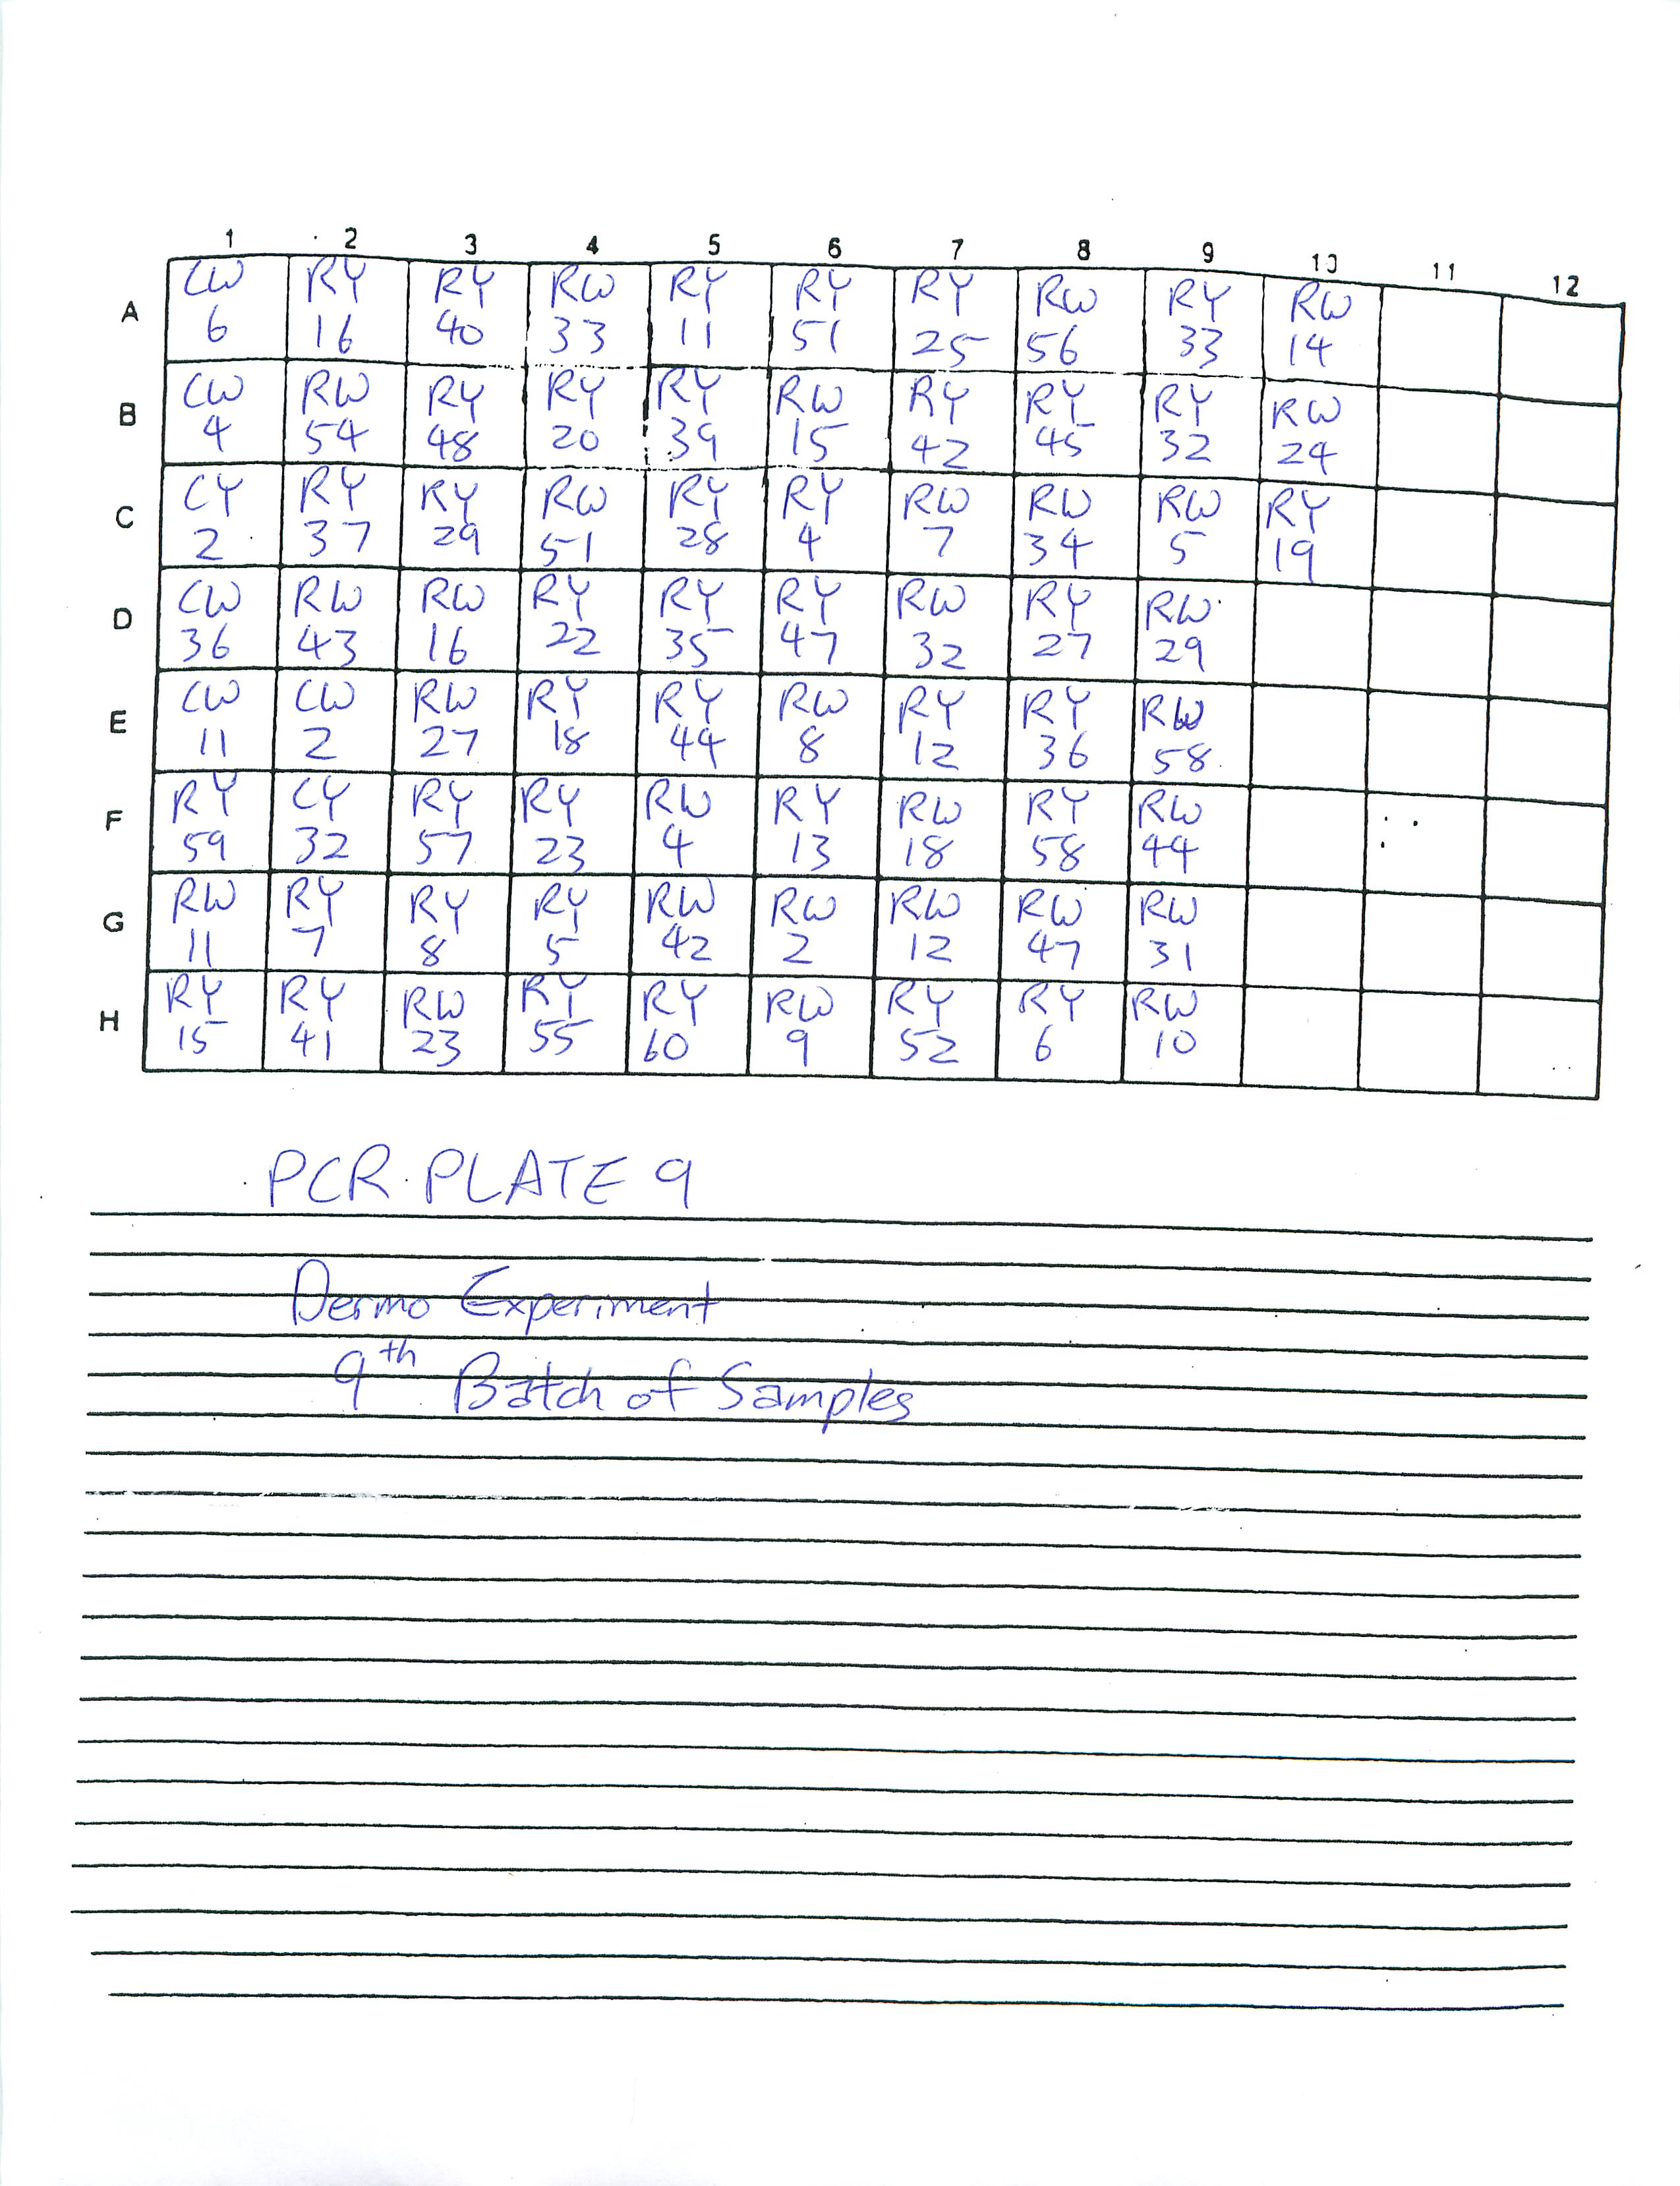 1 2 3 4 5 6 7 8 9 10 11 12
A CW RY RY RW RY RY RY RW RY RW
6 16 40 33 11 51 25 56 33 14
B CW RW RY RY RY RW RY RY RY RW
4 54 48 20 39 15 42 45 32 24
C CY RY RY RW RY RY RW RW RW RY
2 37 29 51 28 4 7 34 5 19
D CW RW RW RY RY RY RW RY RW
36 43 16 22 35 47 32 27 29
E CW CW RW RY RY RW RY RY RW
11 2 27 18 44 8 12 36 58
F RY CY RY RY RW RY RW RY RW
59 32 57 23 4 13 18 58 44
G RW RY RY RY RW RW RW RW RW
11 7 8 5 42 2 12 47 31
H RY RY RW RY RY RW RY RY RW
15 41 23 55 60 9 52 6 10
PCR PLATE 9
Dermo Experiment
9th Batch of Samples